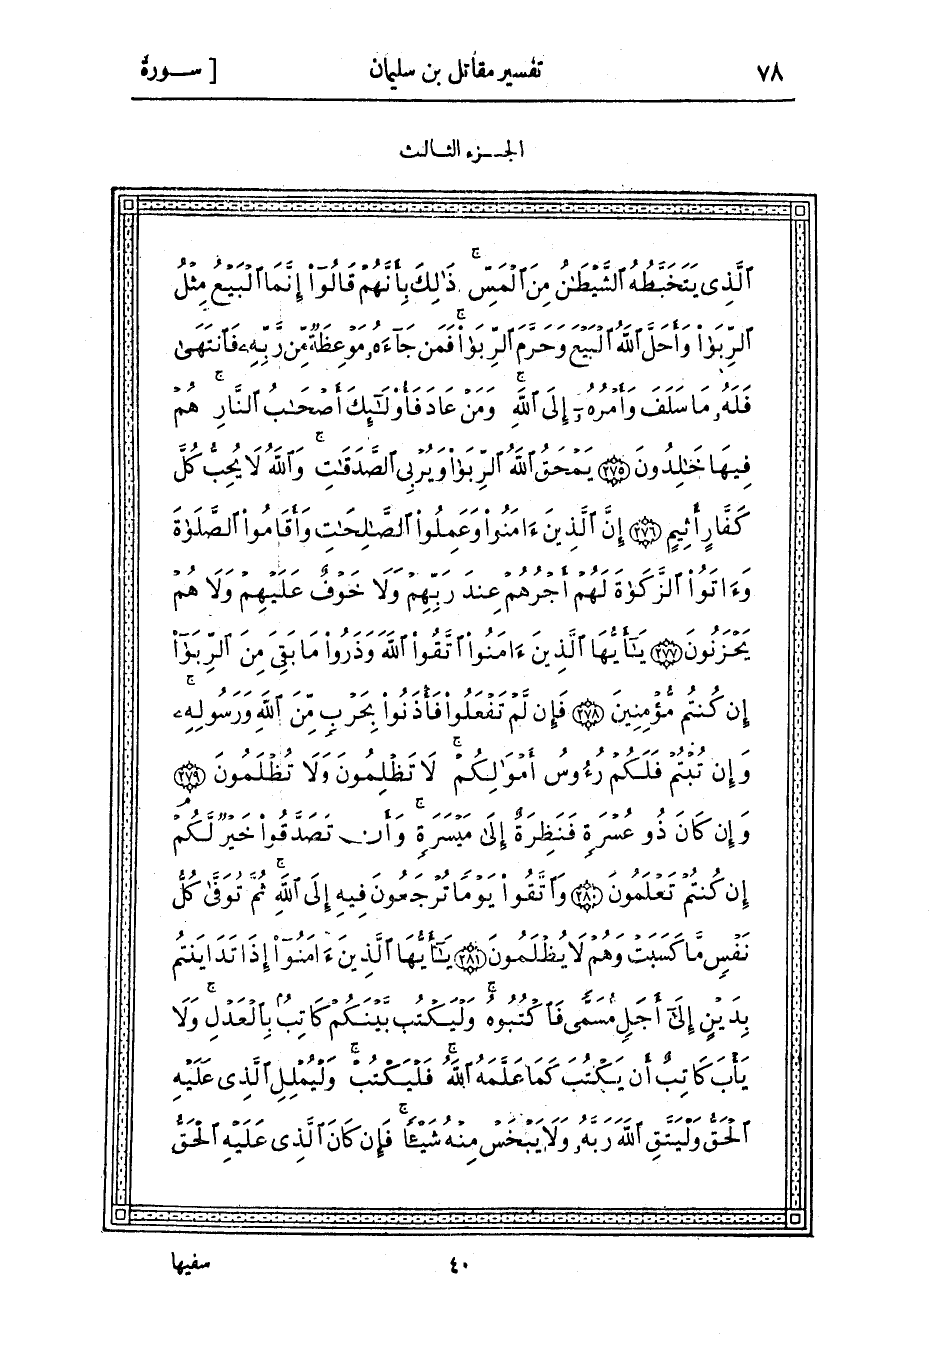 ٧٨ تفسير مقاتل بن سليمان [ سـورة
الجـزء الثالث
ٱلَّذِى يَتَخَبَّطُهُ ٱلشَّيْطَٰنُ مِنَ ٱلْمَسِّ ۚ ذَٰلِكَ بِأَنَّهُمْ قَالُوٓا۟ إِنَّمَا ٱلْبَيْعُ مِثْلُ
ٱلرِّبَوٰا۟ وَأَحَلَّ ٱللَّهُ ٱلْبَيْعَ وَحَرَّمَ ٱلرِّبَوٰا۟ ۚ فَمَن جَآءَهُۥ مَوْعِظَةٌ مِّن رَّبِّهِۦ فَٱنتَهَىٰ
فَلَهُۥ مَا سَلَفَ وَأَمْرُهُۥٓ إِلَى ٱللَّهِ ۚ وَمَنْ عَادَ فَأُو۟لَٰٓئِكَ أَصْحَٰبُ ٱلنَّارِ ۚ هُمْ
فِيهَا خَٰلِدُونَ ﴿٢٧٥﴾ يَمْحَقُ ٱللَّهُ ٱلرِّبَوٰا۟ وَيُرْبِى ٱلصَّدَقَٰتِ ۚ وَٱللَّهُ لَا يُحِبُّ كُلَّ
كَفَّارٍ أَثِيمٍ ﴿٢٧٦﴾ إِنَّ ٱلَّذِينَ ءَامَنُوا۟ وَعَمِلُوا۟ ٱلصَّٰلِحَٰتِ وَأَقَامُوا۟ ٱلصَّلَوٰةَ
وَءَاتَوُا۟ ٱلزَّكَوٰةَ لَهُمْ أَجْرُهُمْ عِندَ رَبِّهِمْ وَلَا خَوْفٌ عَلَيْهِمْ وَلَا هُمْ
يَحْزَنُونَ ﴿٢٧٧﴾ يَٰٓأَيُّهَا ٱلَّذِينَ ءَامَنُوا۟ ٱتَّقُوا۟ ٱللَّهَ وَذَرُوا۟ مَا بَقِىَ مِنَ ٱلرِّبَوٰٓا۟
إِن كُنتُم مُّؤْمِنِينَ ﴿٢٧٨﴾ فَإِن لَّمْ تَفْعَلُوا۟ فَأْذَنُوا۟ بِحَرْبٍ مِّنَ ٱللَّهِ وَرَسُولِهِۦ ۚ
وَإِن تُبْتُمْ فَلَكُمْ رُءُوسُ أَمْوَٰلِكُمْ ۚ لَا تَظْلِمُونَ وَلَا تُظْلَمُونَ ﴿٢٧٩﴾
وَإِن كَانَ ذُو عُسْرَةٍ فَنَظِرَةٌ إِلَىٰ مَيْسَرَةٍ ۚ وَأَن تَصَدَّقُوا۟ خَيْرٌ لَّكُمْ
إِن كُنتُمْ تَعْلَمُونَ ﴿٢٨٠﴾ وَٱتَّقُوا۟ يَوْمًا تُرْجَعُونَ فِيهِ إِلَى ٱللَّهِ ۚ ثُمَّ تُوَفَّىٰ كُلُّ
نَفْسٍ مَّا كَسَبَتْ وَهُمْ لَا يُظْلَمُونَ ﴿٢٨١﴾ يَٰٓأَيُّهَا ٱلَّذِينَ ءَامَنُوٓا۟ إِذَا تَدَايَنتُم
بِدَيْنٍ إِلَىٰٓ أَجَلٍ مُّسَمًّى فَٱكْتُبُوهُ ۚ وَلْيَكْتُب بَّيْنَكُمْ كَاتِبٌۢ بِٱلْعَدْلِ ۚ وَلَا
يَأْبَ كَاتِبٌ أَن يَكْتُبَ كَمَا عَلَّمَهُ ٱللَّهُ ۚ فَلْيَكْتُبْ ۚ وَلْيُمْلِلِ ٱلَّذِى عَلَيْهِ
ٱلْحَقُّ وَلْيَتَّقِ ٱللَّهَ رَبَّهُۥ وَلَا يَبْخَسْ مِنْهُ شَيْـًٔا ۚ فَإِن كَانَ ٱلَّذِى عَلَيْهِ ٱلْحَقُّ
٤٠ سفيها